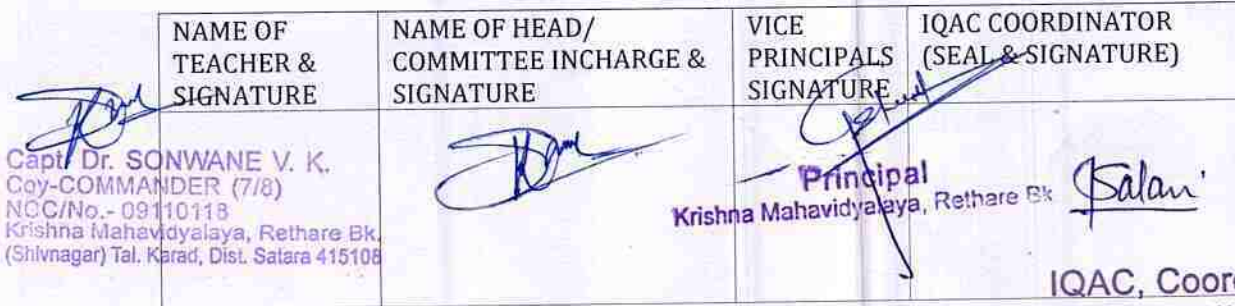 NAME OF
TEACHER &
SIGNATURE
NAME OF HEAD/
COMMITTEE INCHARGE &
SIGNATURE
VICE
PRINCIPALS
SIGNATURE
IQAC COORDINATOR
(SEAL & SIGNATURE)
Capt Dr. SONWANE V. K.
Coy-COMMANDER (7/8)
NCC/No.- 09110118
Krishna Mahavidyalaya, Rethare Bk.
(Shivnagar) Tal. Karad, Dist. Satara 415108
Principal
Krishna Mahavidyalaya, Rethare Bk
IQAC, Coor